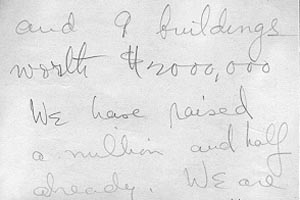 and 9 buildings
worth $2000,000
We have raised
a million and half
already. We are